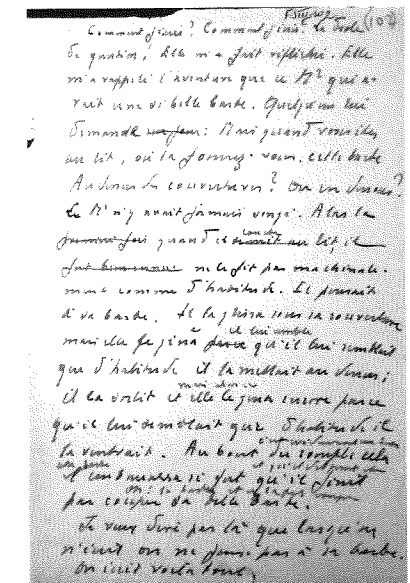 Comment j'écris? Comment j'écris. La drôle
de question! Elle m'a fait réfléchir. Elle
m'a rappelé l'aventure que ce Mr qui a-
vait une si belle barbe. Quelqu'un lui
demanda : Mais quand vous êtes
au lit, où la fourrez-vous, cette barbe
Au dessus des couvertures? Ou en dessous?
Le Mr n'y avait jamais songé. Alors la
fois quand il couché au lit, il
ne le fit pas machinale-
ment comme d'habitude. Il pensait
à sa barbe. Il la glissa sous la couverture
mais elle le gêna parce qu'il lui semblait
que d'habitude il la mettait au dessus;
il la sortit et elle le gêna encore parce
qu'il lui semblait que d'habitude il
la rentrait. Au bout du compte cela
l'embarrassa si fort qu'il finit
par couper sa belle barbe.
Je veux dire par là que lorsqu'on
n'écrit on ne pense pas à sa barbe.
On écrit voilà tout.